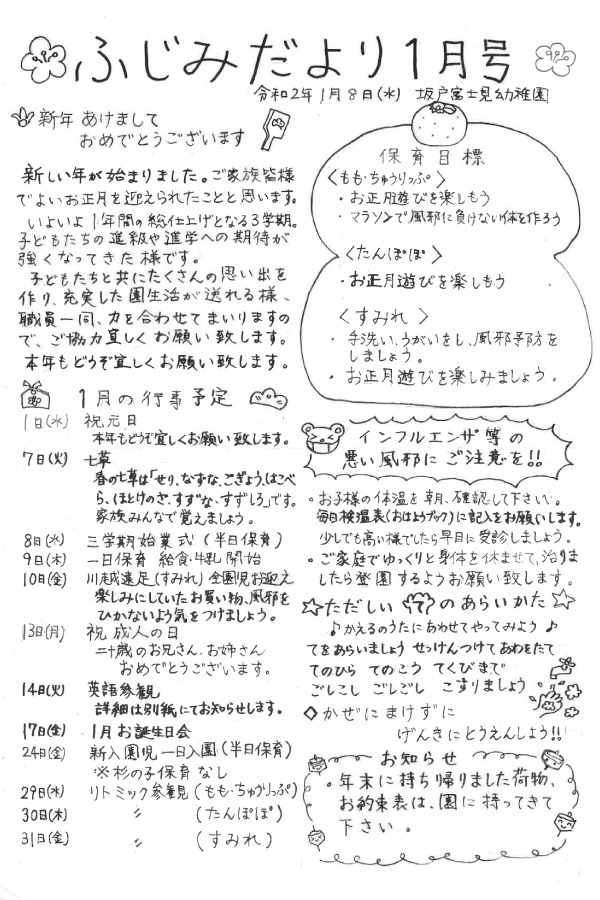 ふじみだより1月号
令和2年1月8日(水) 坂戸富士見幼稚園
新年 あけまして
おめでとうございます
新しい年が始まりました。ご家族皆様
でよいお正月を迎えられたことと思います。
いよいよ1年間の総仕上げとなる3学期。
子どもたちの進級や進学への期待が
強くなってきた様です。
子どもたちと共にたくさんの思い出を
作り、充実した園生活が送れる様、
職員一同、力を合わせてまいりますの
で、ご協力宜しくお願い致します。
本年もどうぞ宜しくお願い致します。
保育目標
〈もも・ちゅうりっぷ〉
・お正月遊びを楽しもう
・マラソンで風邪に負けない体を作ろう
〈たんぽぽ〉
・お正月遊びを楽しもう
〈すみれ〉
・手洗い、うがいをし、風邪予防を
しましょう。
・お正月遊びを楽しみましょう。
1月の行事予定
1日(水) 祝元日
本年もどうぞ宜しくお願い致します。
7日(火) 七草
春の七草は「せり、なずな、ごぎょう、はこべ
ら、ほとけのざ、すずな、すずしろ」です。
家族みんなで覚えましょう。
8日(水) 三学期始業式(半日保育)
9日(木) 一日保育 給食・牛乳開始
10日(金) 川越遠足(すみれ)全園児お迎え
楽しみにしていたお買い物、風邪を
ひかないよう気をつけましょう。
13日(月) 祝 成人の日
二十歳のお兄さん、お姉さん
おめでとうございます。
14日(火) 英語参観
詳細は別紙にてお知らせします。
17日(金) 1月お誕生日会
24日(金) 新入園児一日入園(半日保育)
※杉の子保育なし
29日(水) リトミック参観(もも・ちゅうりっぷ)
30日(木) 〃 (たんぽぽ)
31日(金) 〃 (すみれ)
インフルエンザ等の
悪い風邪にご注意を!!
・お子様の体温を朝、確認して下さい。
毎日検温表(おはようブック)に記入をお願いします。
少しでも高い様でしたら早目に受診しましょう。
・ご家庭でゆっくりと身体を休ませて、治りま
したら登園するようお願い致します。
☆ただしい のあらいかた☆
♪かえるのうたにあわせてやってみよう♪
てをあらいましょう せっけんつけて あわをたて
てのひら てのこう てくびまで
ごしごし ごしごし こすりましょう
◇かぜにまけずに
げんきにとうえんしよう!!
お知らせ
・年末に持ち帰りました荷物、
お約束表は、園に持ってきて
下さい。